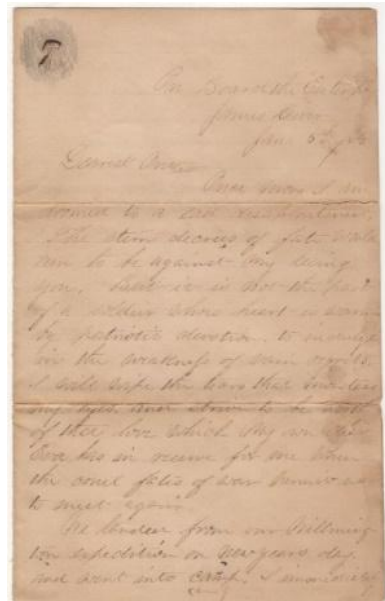 On Board the
James River
Jan. 5th / 65
Dearest One
Once more I am
doomed to a sad disappointment
The stern decrees of fate would
seem to be against my seeing
you. But it is not the part
of a soldier whose heart is warm
by patriotic devotion, to indulge
in the weakness of vain
I will wipe the tears that
my eyes and strive to be
of that love which my own dear
Eva has in reserve for me when
the cruel fates of war permit us
to meet again
We landed from our Willming
ton expedition on New years day
and went into camp. I